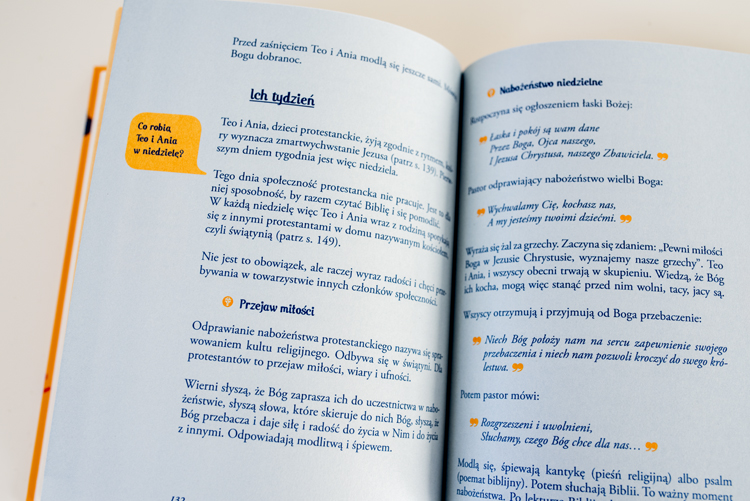 Przed zaśnięciem Teo i Ania modlą się jeszcze sami. Mówią
Bogu dobranoc.
Ich tydzień
Co robią
Teo i Ania
w niedzielę?
Teo i Ania, dzieci protestanckie, żyją zgodnie z rytmem,
ry wyznacza zmartwychwstanie Jezusa (patrz s. 139).
szym dniem tygodnia jest więc niedziela.
Tego dnia społeczność protestancka nie pracuje. Jest to dla
niej sposobność, by razem czytać Biblię i się pomodlić.
W każdą niedzielę więc Teo i Ania wraz z rodziną spotykają
się z innymi protestantami w domu nazywanym kościołem,
czyli świątynią (patrz s. 149).
Nie jest to obowiązek, ale raczej wyraz radości i chęci prze-
bywania w towarzystwie innych członków społeczności.
Przejaw miłości
Odprawianie nabożeństwa protestanckiego nazywa się spra-
wowaniem kultu religijnego. Odbywa się w świątyni. Dla
protestantów to przejaw miłości, wiary i ufności.
Wierni słyszą, że Bóg zaprasza ich do uczestnictwa w nabo-
żeństwie, słyszą słowa, które skieruje do nich Bóg, słyszą, że
Bóg przebacza i daje siłę i radość do życia w Nim i do życia
z innymi. Odpowiadają modlitwą i śpiewem.
132
Nabożeństwo niedzielne
Rozpoczyna się ogłoszeniem łaski Bożej:
Łaska i pokój są wam dane
Przez Boga, Ojca naszego,
I Jezusa Chrystusa, naszego Zbawiciela.
Pastor odprawiający nabożeństwo wielbi Boga:
Wychwalamy Cię, kochasz nas,
A my jesteśmy twoimi dziećmi.
Wyraża się żal za grzechy. Zaczyna się zdaniem: „Pewni miłości
Boga w Jezusie Chrystusie, wyznajemy nasze grzechy”. Teo
i Ania, i wszyscy obecni trwają w skupieniu. Wiedzą, że Bóg
ich kocha, mogą więc stanąć przed nim wolni, tacy, jacy są.
Wszyscy otrzymują i przyjmują od Boga przebaczenie:
Niech Bóg położy nam na sercu zapewnienie swojego
przebaczenia i niech nam pozwoli kroczyć do swego kró-
lestwa.
Potem pastor mówi:
Rozgrzeszeni i uwolnieni,
Słuchamy, czego Bóg chce dla nas…
Modlą się, śpiewają kantykę (pieśń religijną) albo psalm
(poemat biblijny). Potem słuchają Biblii. To ważny moment
nabożeństwa. Po lekturze